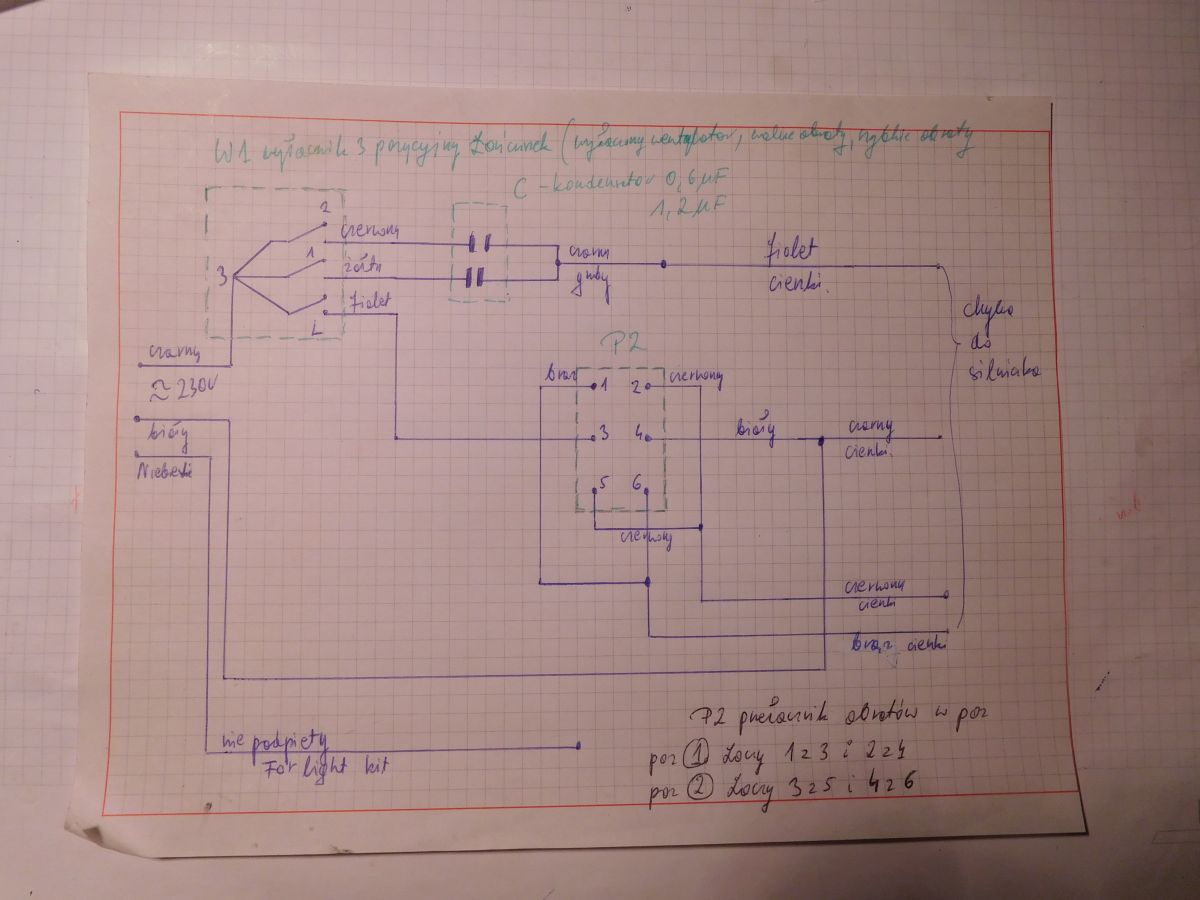 W1 wyłacznik 3 pozycyjny Łańcuszek (wyłaczony wentylator, wolne obroty, szybkie obroty
C - kondensator 0,6 µF
1,2 µF
2
czerwony
1
żółty
3
Fiolet
L
czarny
gruby
Fiolet
cienki.
Chyba
do
silnika
czarny
≈ 230V
biały
Niebieski
P2
brąz
1
2
czerwony
3
4
biały
czarny
cienki.
5
6
czerwony
czerwony
cienki
brąz cienki
nie podpięty
For light kit
P2 przełacznik obrotów w poz
poz 1 Łączy 1 z 3 i 2 z 4
poz 2 Łączy 3 z 5 i 4 z 6